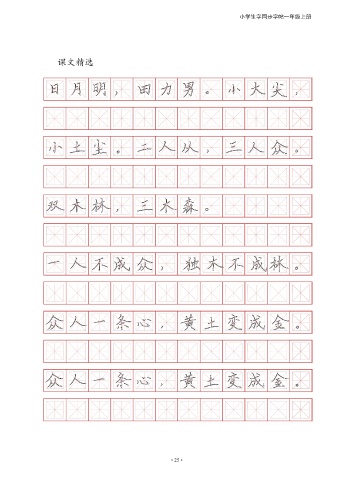 小学生字同步字帖一年级上册
课文精选
日月明，田力男。小大尖，
小土尘。二人从，三人众。
双木林，三木森。
一人不成众，独木不成林。
众人一条心，黄土变成金。
众人一条心，黄土变成金。
·25·